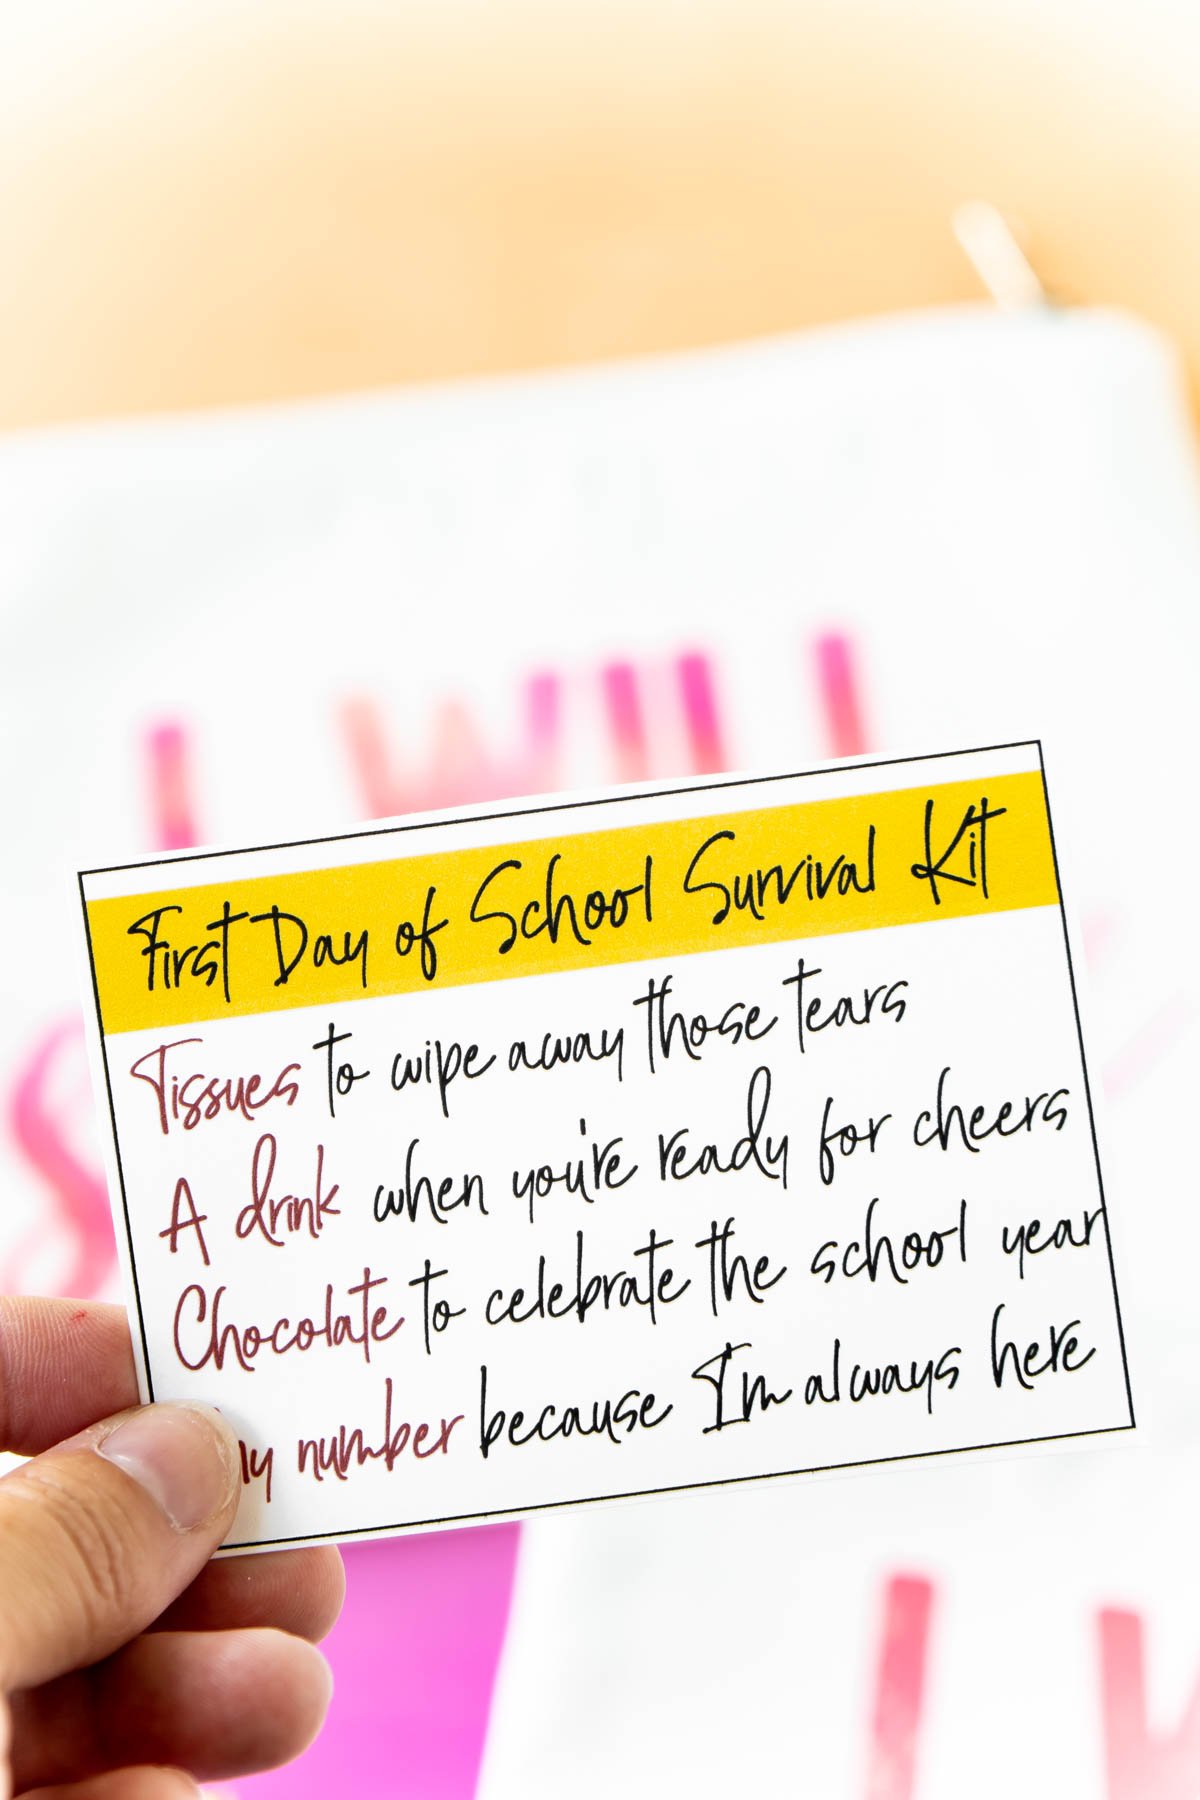 I WILL
First Day of School Survival Kit
Tissues to wipe away those tears
A drink when you're ready for cheers
Chocolate to celebrate the school year
my number because I'm always here